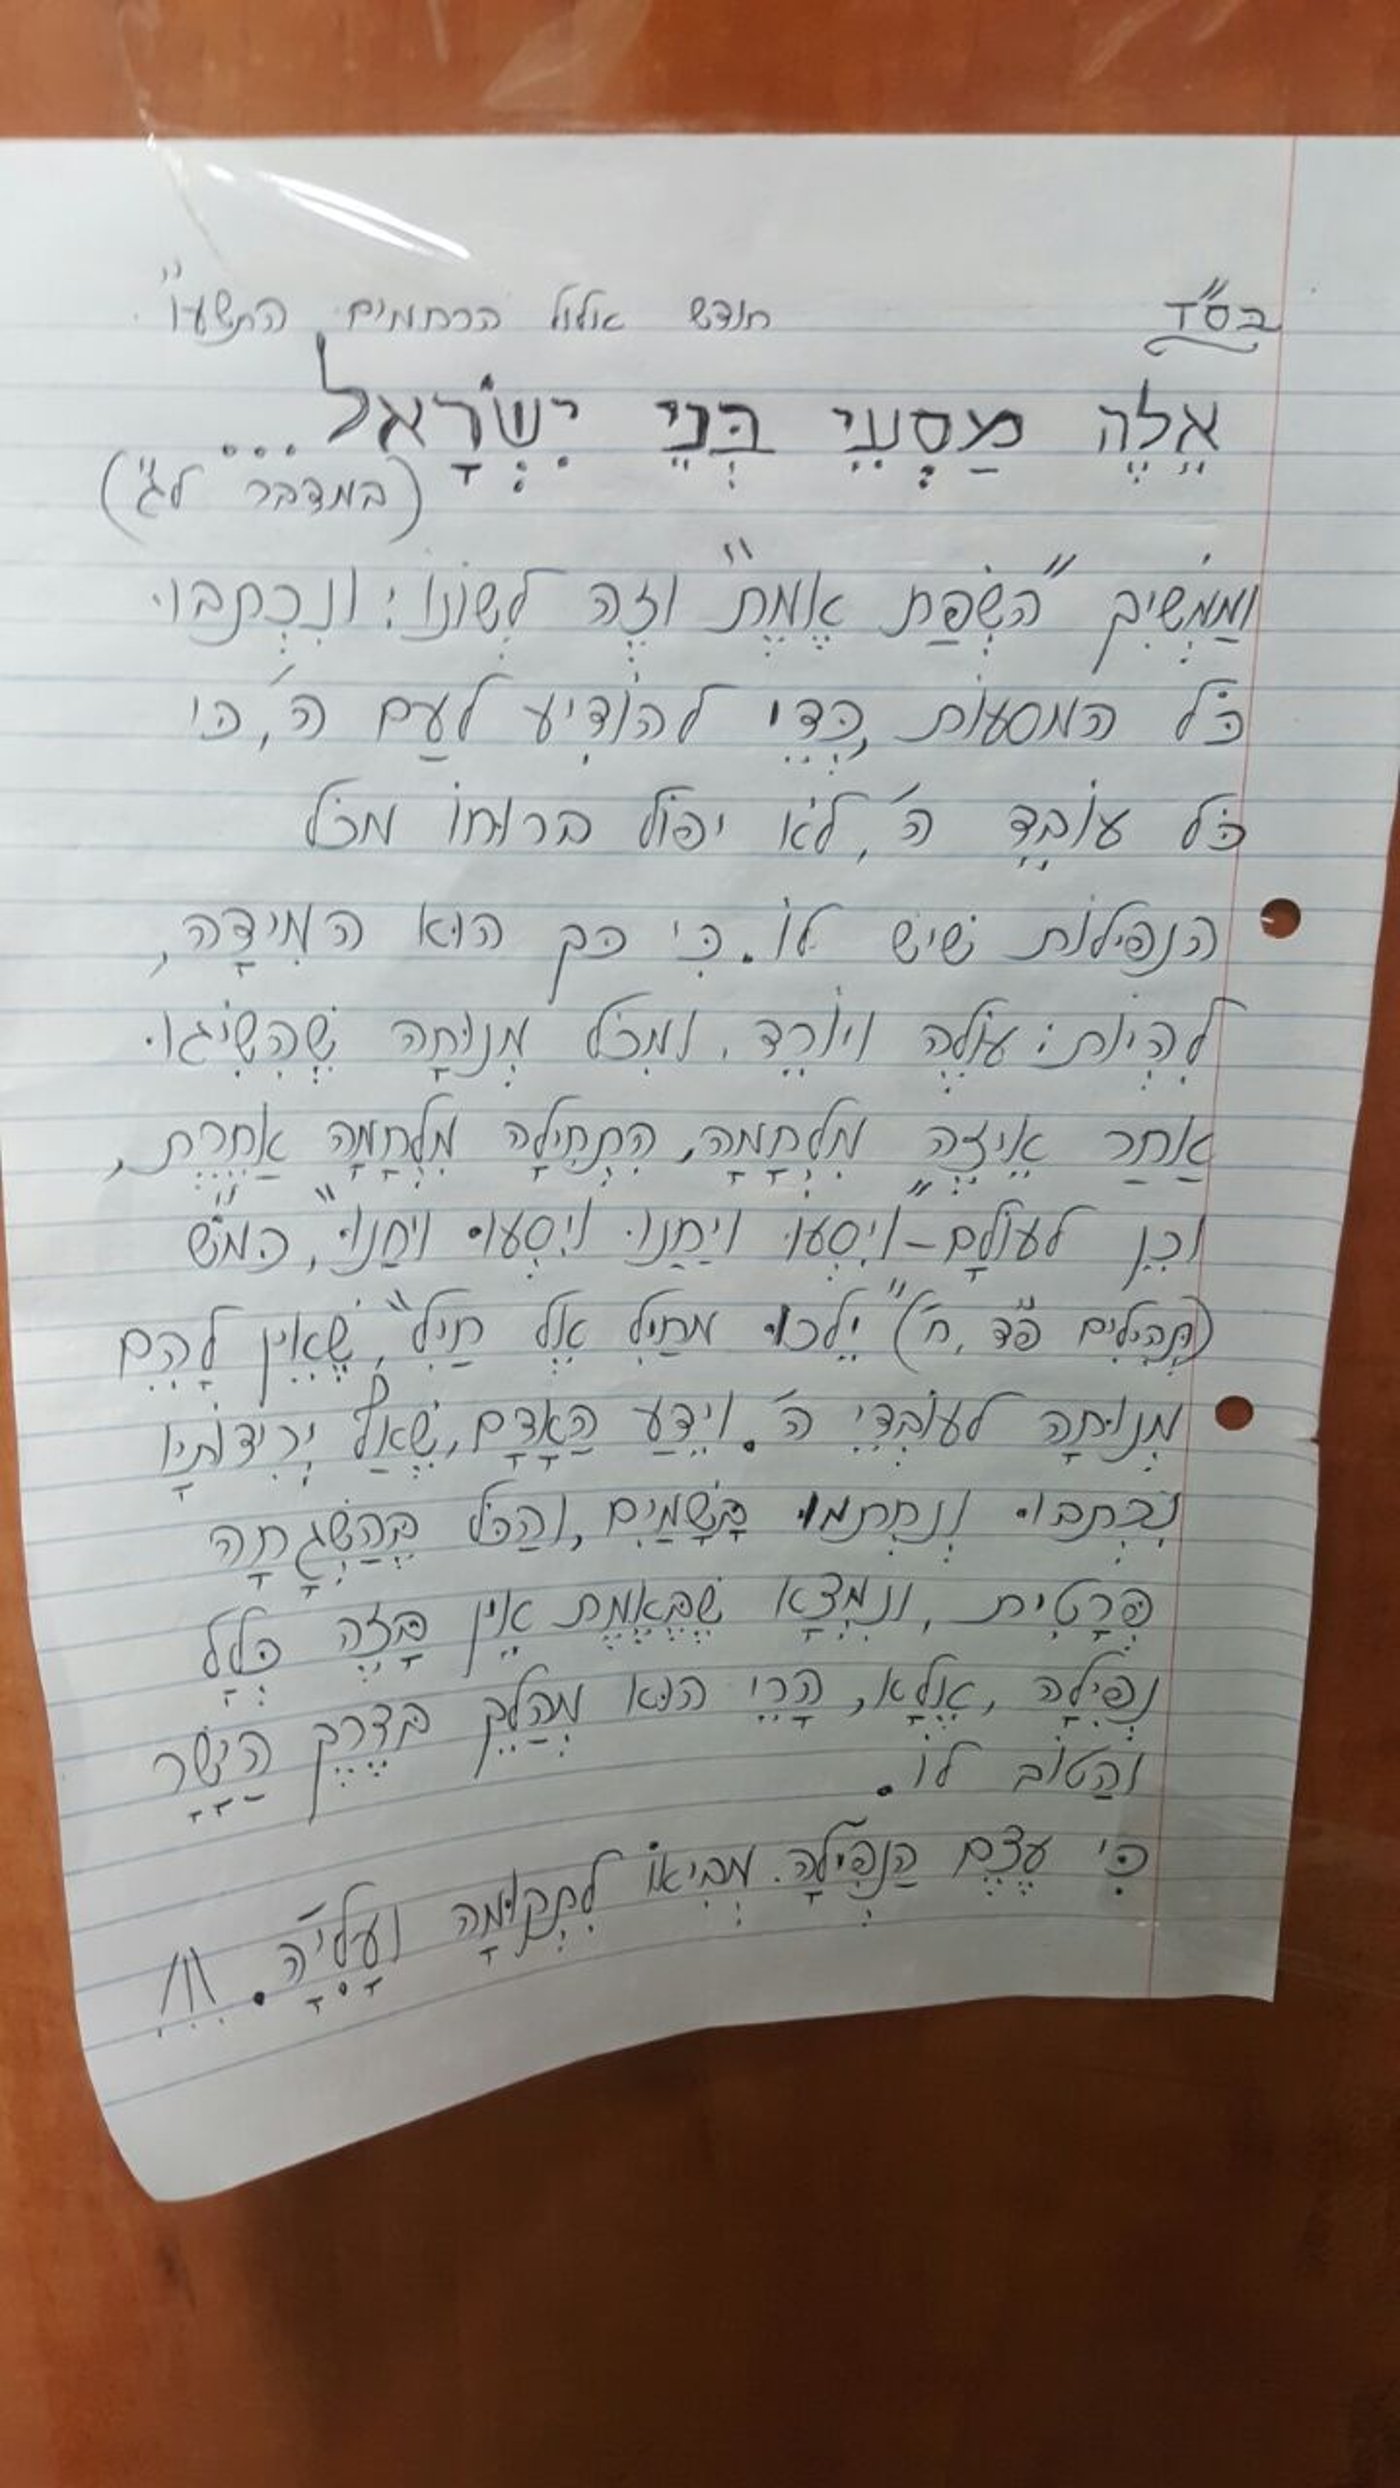 בס"ד
חודש אלול הרחמים התשע"ו
אֵלֶה מַסְעֵי בְּנֵי יִשְׂרָאל...
(במדבר ל"ג)
וּמַמְשִׁיךְ "השְׂפַת אֱמֶת" וזֶה לְשׁוֹנוֹ: ונִכְתבוּ
כֹּל המסעוֹת, כְּדֵי להוֹדִיע לעַם ה', כּי
כֹּל עוֹבֵד ה', לֹא יפּוֹל ברוּחוֹ מכֹּל
הנפילוֹת שׁישׁ לוֹ. כִּי כּך הוּא המִידָה,
לִהְיוֹת: עוֹלֶה ויוֹרֵד, וּמִכֹּל מְנוּחָה שֶׁהִשִּׂיגוּ
אַחַר אֵיזֶה מִלְחָמָה, הִתְחִילָה מִלְחָמָה אַחֶרֶת,
וכֵן לעוֹלָם - "ויִסְעוּ ויַחֲנוּ ויִסְעוּ ויַחנוּ", כּמ"שׁ
(תְהִילִים פ"ד, ח') "יֵלכוּ מחַיִל אֶל חַיִל", שֶׁאֵין לָהֶם
מְנוּחָה לעוֹבְדֵי ה'. ויֵדַע הַאָדָם, שֶׁאַף יְרִידוֹתָיו
נִכְתבוּ וְנחְתמוּ בַּשָׁמַיִם, והַכֹּל בְּהַשְׁגָחָה
פְּרָטִית, ונִמְצָא שֶׁבֶּאֱמֶת אֵין בָּזֶה כְּלָל
נְפִילָה, אֶלָא, הָרֵי הוּא מְהַלֵךְ בּדֶּרֶךְ הַיָשָׁר
והַטוֹב לוֹ.
כִּי עֶצֶם הַנְפִילָה. מְבִיאוֹ לִתְקוּמָה ועָלִיָה. !!!